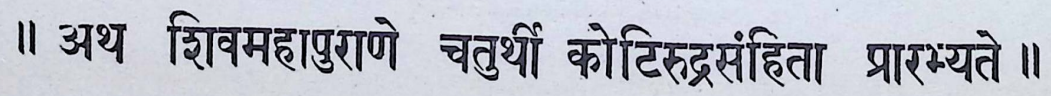 ॥ अथ शिवमहापुराणे चतुर्थी कोटिरुद्रसंहिता प्रारभ्यते ॥